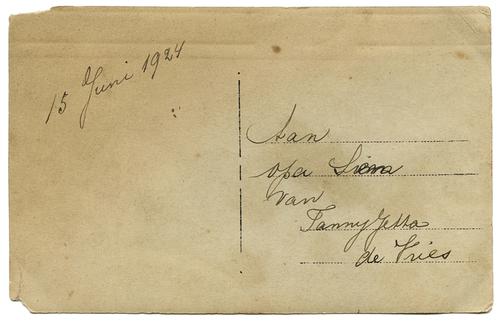 15 Juni 1924
Aan
opa Siema
van
Fanny Jetta
de Vries